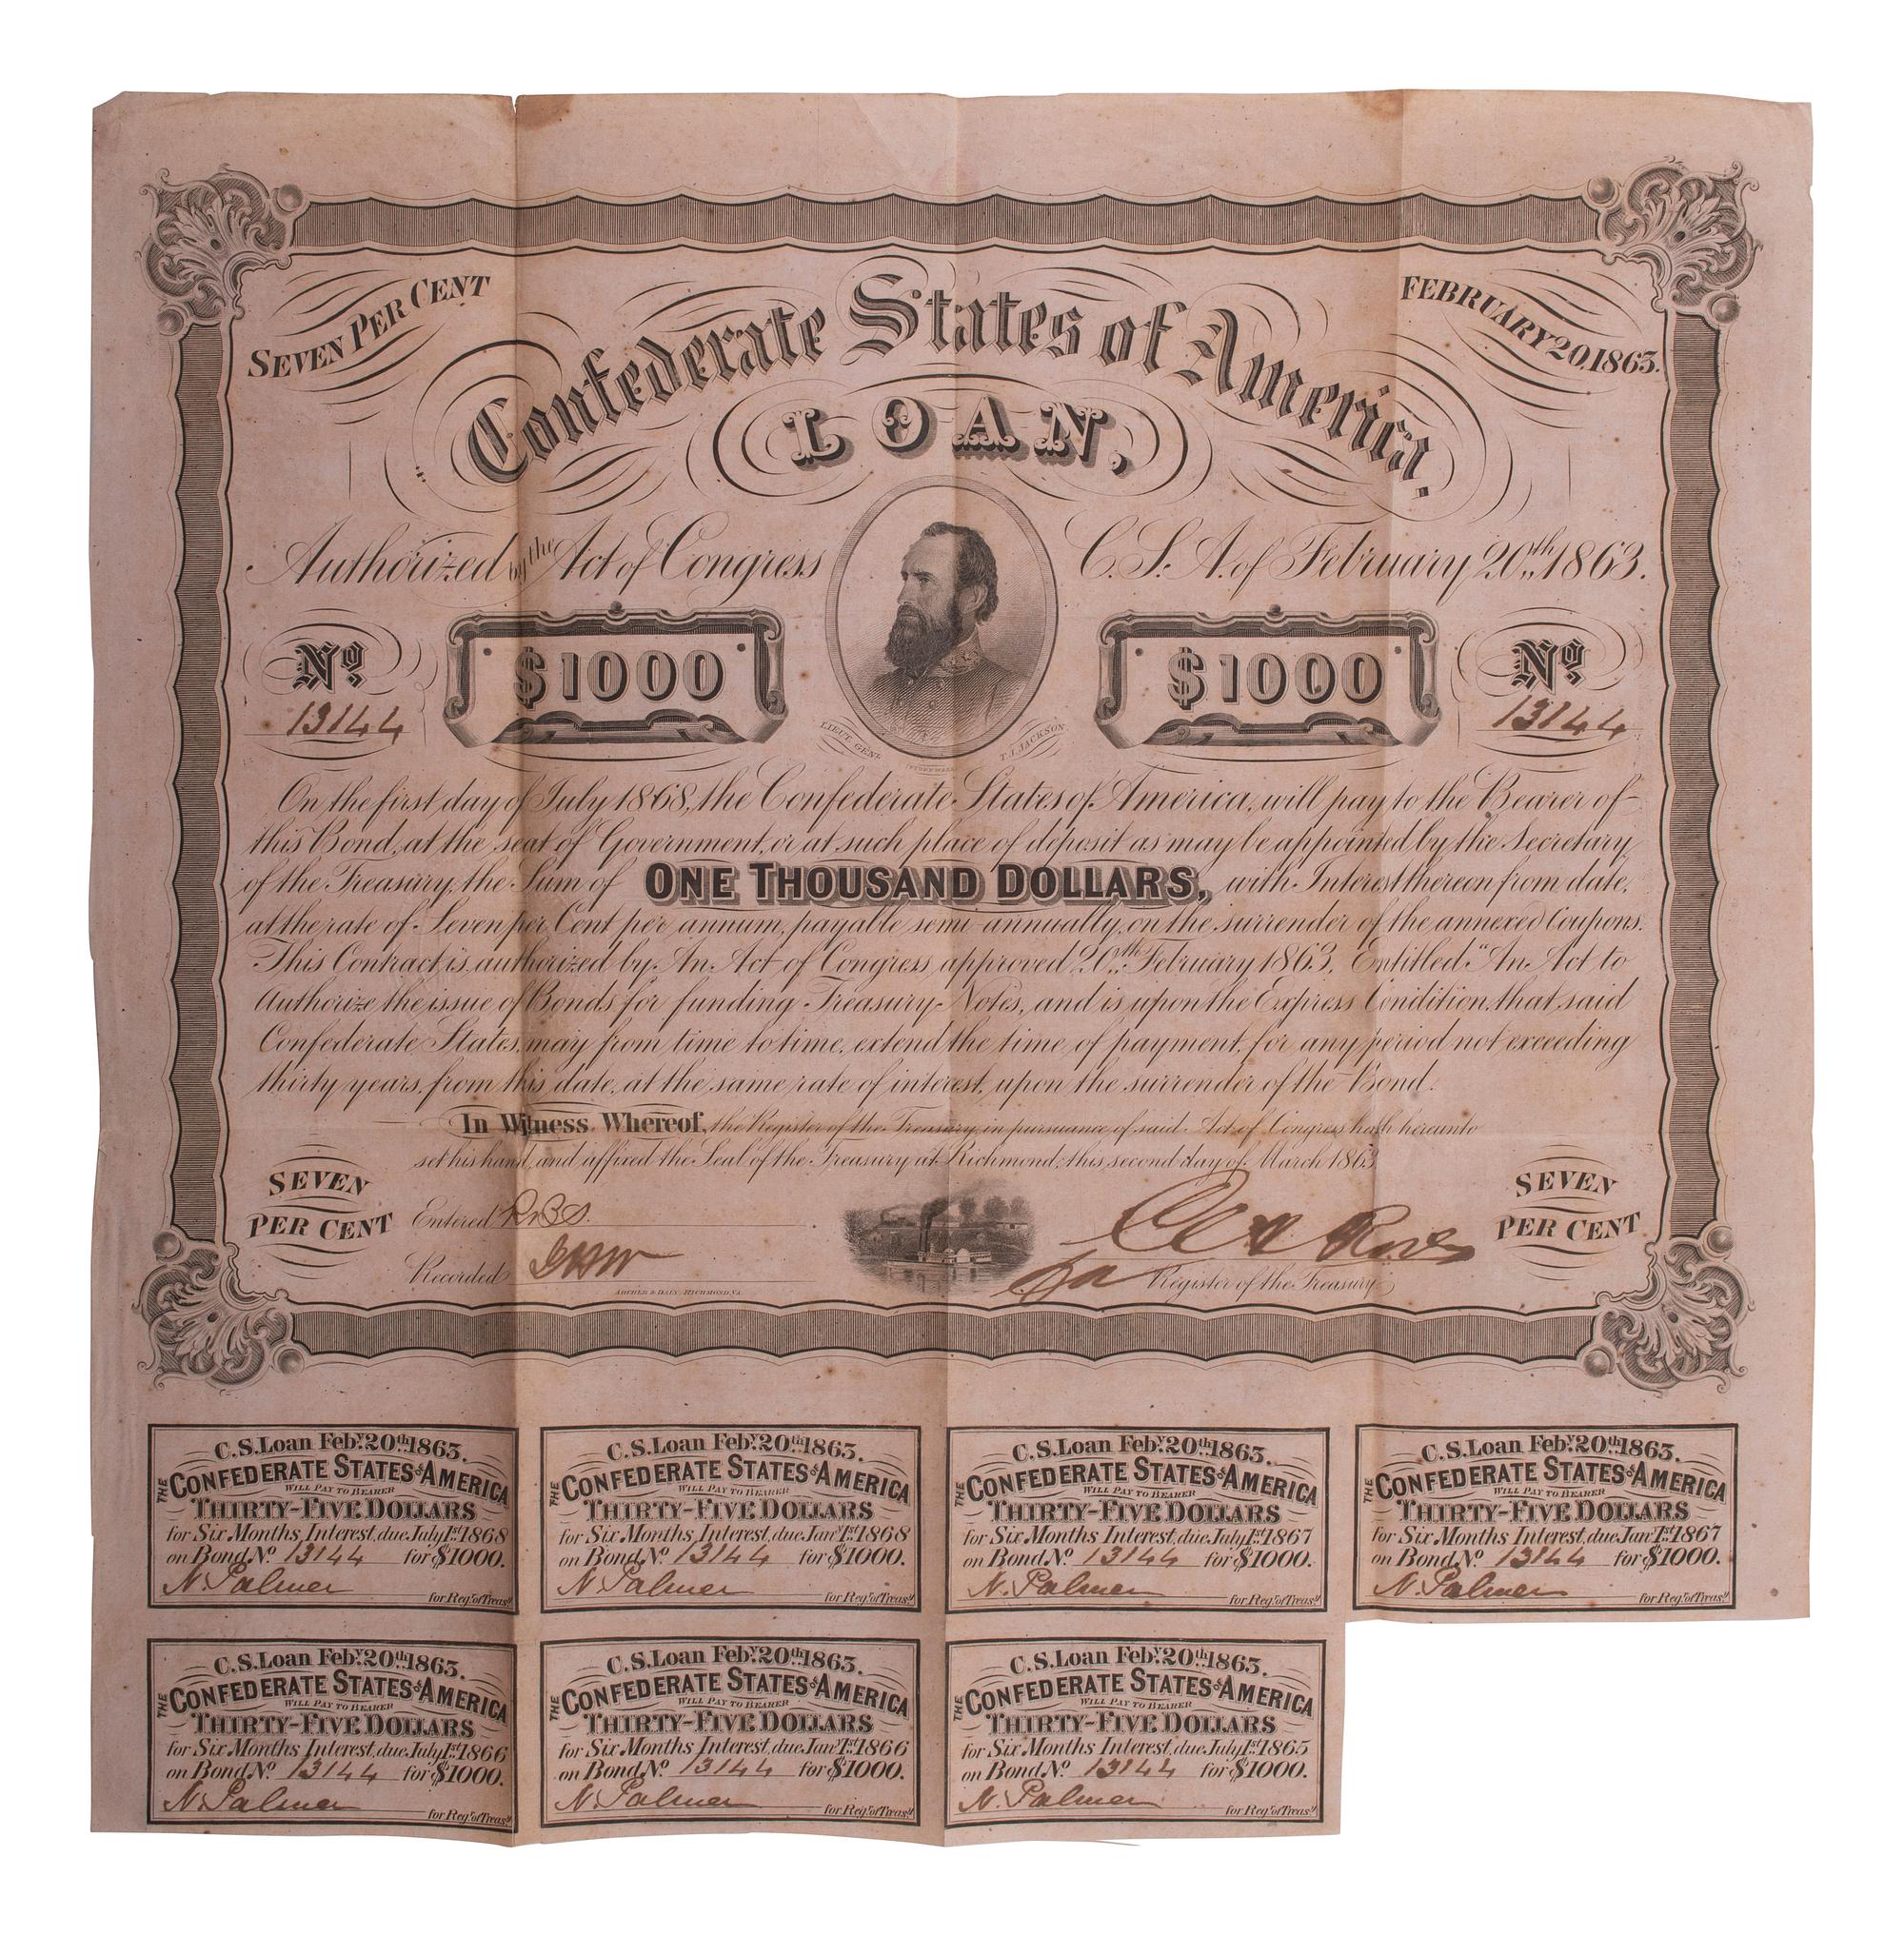 SEVEN PER CENT
FEBRUARY 20, 1863.
Confederate States of America.
LOAN,
Authorized by the Act of Congress C.S.A. of February 20th 1863.
No $1000 $1000 No
13144 13144
LIEUT. GENL. T.J. JACKSON
On the first day of July 1868, the Confederate States of America, will pay to the Bearer of
this Bond, at the seat of Government, or at such place of deposit as may be appointed by the Secretary
of the Treasury, the Sum of ONE THOUSAND DOLLARS, with Interest thereon from date,
at the rate of Seven per Cent per annum, payable semi annually, on the surrender of the annexed Coupons.
This Contract is authorized by An Act of Congress approved 20th February 1863, Entitled "An Act to
Authorize the issue of Bonds for funding Treasury Notes, and is upon the Express Condition, that said
Confederate States, may from time to time, extend the time of payment, for any period not exceeding
thirty years, from this date, at the same rate of interest, upon the surrender of the Bond.
In Witness Whereof, the Register of the Treasury in pursuance of said Act of Congress hath hereunto
set his hand, and affixed the Seal of the Treasury at Richmond, this second day of March 1863
SEVEN
PER CENT
SEVEN
PER CENT
Entered
Recorded
ARCHER & DALY, RICHMOND VA.
Register of the Treasury
C.S. Loan Feby. 20th 1863.
THE CONFEDERATE STATES OF AMERICA
WILL PAY TO BEARER
THIRTY-FIVE DOLLARS
for Six Months Interest, due July 1st 1868
on Bond No 13144 for $1000.
N. Palmer
for Regr. of Treasy.
C.S. Loan Feby. 20th 1863.
THE CONFEDERATE STATES OF AMERICA
WILL PAY TO BEARER
THIRTY-FIVE DOLLARS
for Six Months Interest, due Jany 1st 1868
on Bond No 13144 for $1000.
N. Palmer
for Regr. of Treasy.
C.S. Loan Feby. 20th 1863.
THE CONFEDERATE STATES OF AMERICA
WILL PAY TO BEARER
THIRTY-FIVE DOLLARS
for Six Months Interest, due July 1st 1867
on Bond No 13144 for $1000.
N. Palmer
for Regr. of Treasy.
C.S. Loan Feby. 20th 1863.
THE CONFEDERATE STATES OF AMERICA
WILL PAY TO BEARER
THIRTY-FIVE DOLLARS
for Six Months Interest, due Jany 1st 1867
on Bond No 13144 for $1000.
N. Palmer
for Regr. of Treasy.
C.S. Loan Feby. 20th 1863.
THE CONFEDERATE STATES OF AMERICA
WILL PAY TO BEARER
THIRTY-FIVE DOLLARS
for Six Months Interest, due July 1st 1866
on Bond No 13144 for $1000.
N. Palmer
for Regr. of Treasy.
C.S. Loan Feby. 20th 1863.
THE CONFEDERATE STATES OF AMERICA
WILL PAY TO BEARER
THIRTY-FIVE DOLLARS
for Six Months Interest, due Jany 1st 1866
on Bond No 13144 for $1000.
N. Palmer
for Regr. of Treasy.
C.S. Loan Feby. 20th 1863.
THE CONFEDERATE STATES OF AMERICA
WILL PAY TO BEARER
THIRTY-FIVE DOLLARS
for Six Months Interest, due July 1st 1865
on Bond No 13144 for $1000.
N. Palmer
for Regr. of Treasy.